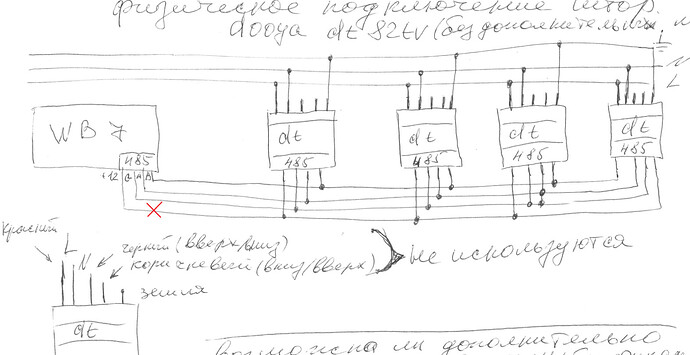 физическое подключение штор.
dooya dt 82tv (без дополнительных
N
L
WB 7
485
+12 G A B
dt
485
dt
485
dt
485
dt
485
красный
L
N
черный (вверх/вниз)
коричневый (вниз/вверх)
земля
не используются
dt
Возможна ли дополнительно